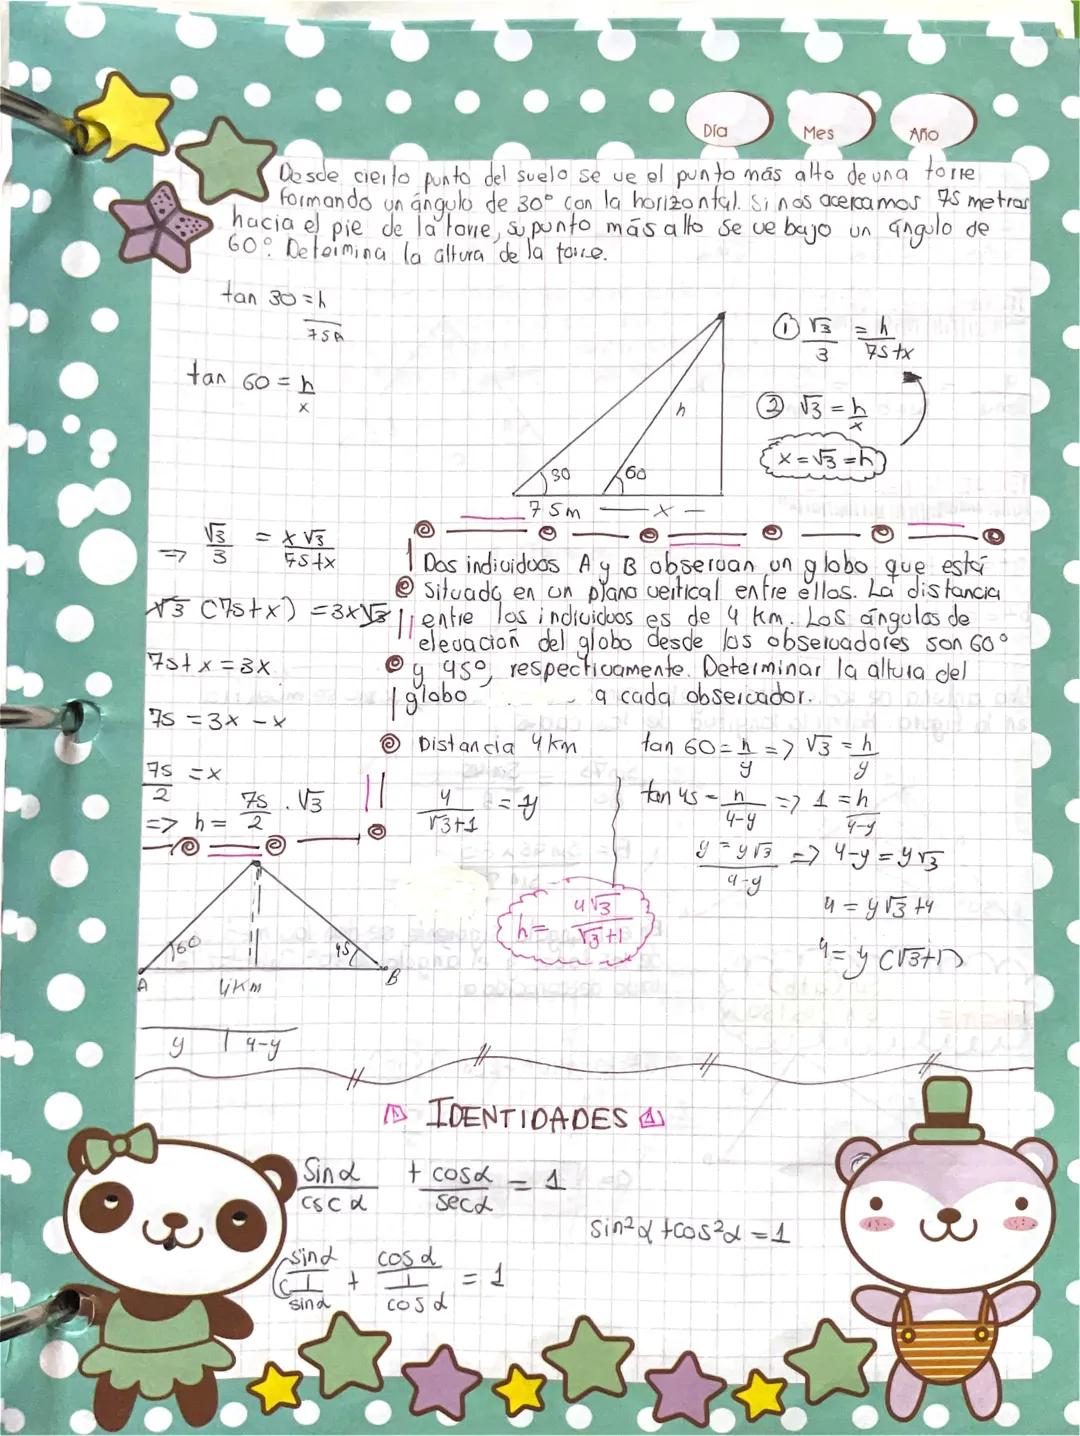 Día Mes Año
Desde cierto punto del suelo se ve el punto más alto de una torre
formando un ángulo de 30° con la horizontal. Si nos acercamos 75 metros
hacia el pie de la torre, su punto más alto se ve bajo un ángulo de
60°. Determina la altura de la torre.
tan 30 = h
75
tan 60 = h
x
30 60 h
75m — x —
① √3/3 = h/75+x
② √3 = h/x
x = √3 = h
=> √3/3 = x√3/75+x
√3 (75+x) = 3x√3
75+x = 3x
75 = 3x - x
75/2 = x
=> h = 75/2 . √3
Dos individuos A y B observan un globo que está
situado en un plano vertical entre ellos. La distancia
entre los individuos es de 4 km. Los ángulos de
elevación del globo desde los observadores son 60°
y 45°, respectivamente. Determinar la altura del
globo a cada observador.
Distancia 4 km
4/√3+1 = y
h = 4√3/√3+1
tan 60 = h/y => √3 = h/y
tan 45 = h/4-y => 1 = h/4-y
y = y√3/4-y => 4-y = y√3
4 = y√3+y
4 = y (√3+1)
60 45
A 4km B
y | 4-y
IDENTIDADES
Sin α/csc α + cos α/sec α = 1
sin²α + cos²α = 1
sin α/1/sin α + cos α/1/cos α = 1